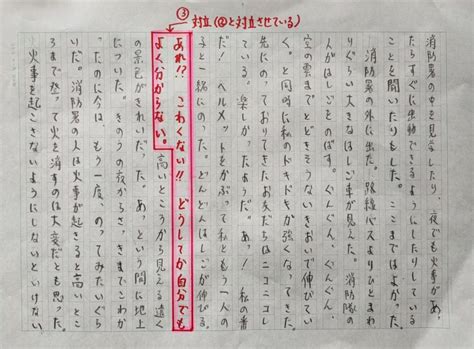 ③対立(②と対立させている)
消防署の中を見学したり、夜でも火事があっ
たらすぐに出動できるようにしたりしている
ことを聞いたりもした。ここまではよかった。
消防署の外に出た。路線バスよりひとまわ
りぐらい大きなはしご車が見えた。消防隊の
人がはしごをのばす。ぐんぐん、ぐんぐん、
空の雲までとどきそうないきおいで伸びてい
く。と同時に私のドキドキが強くなってきた。
先にのっておりてきたお友だちはニコニコし
ている。楽しかったって。あっ、私の番
だ!ヘルメットをかぶって私ともう一人の
子と一緒にのった。どんどんはしごが伸びる。
あれ!?こわくない!!どうしてか自分でも
よく分からない。高いところから見える遠く
の景色がきれいだった。あっという間に地上
についた。きのうの夜からさっきまでこわか
ったのに今は、もう一度、のってみたいぐら
いだ。消防署の人は火事が起きると高いとこ
ろまで登って火を消すのは大変だとも思った。
火事を起こさないようにしないといけない。